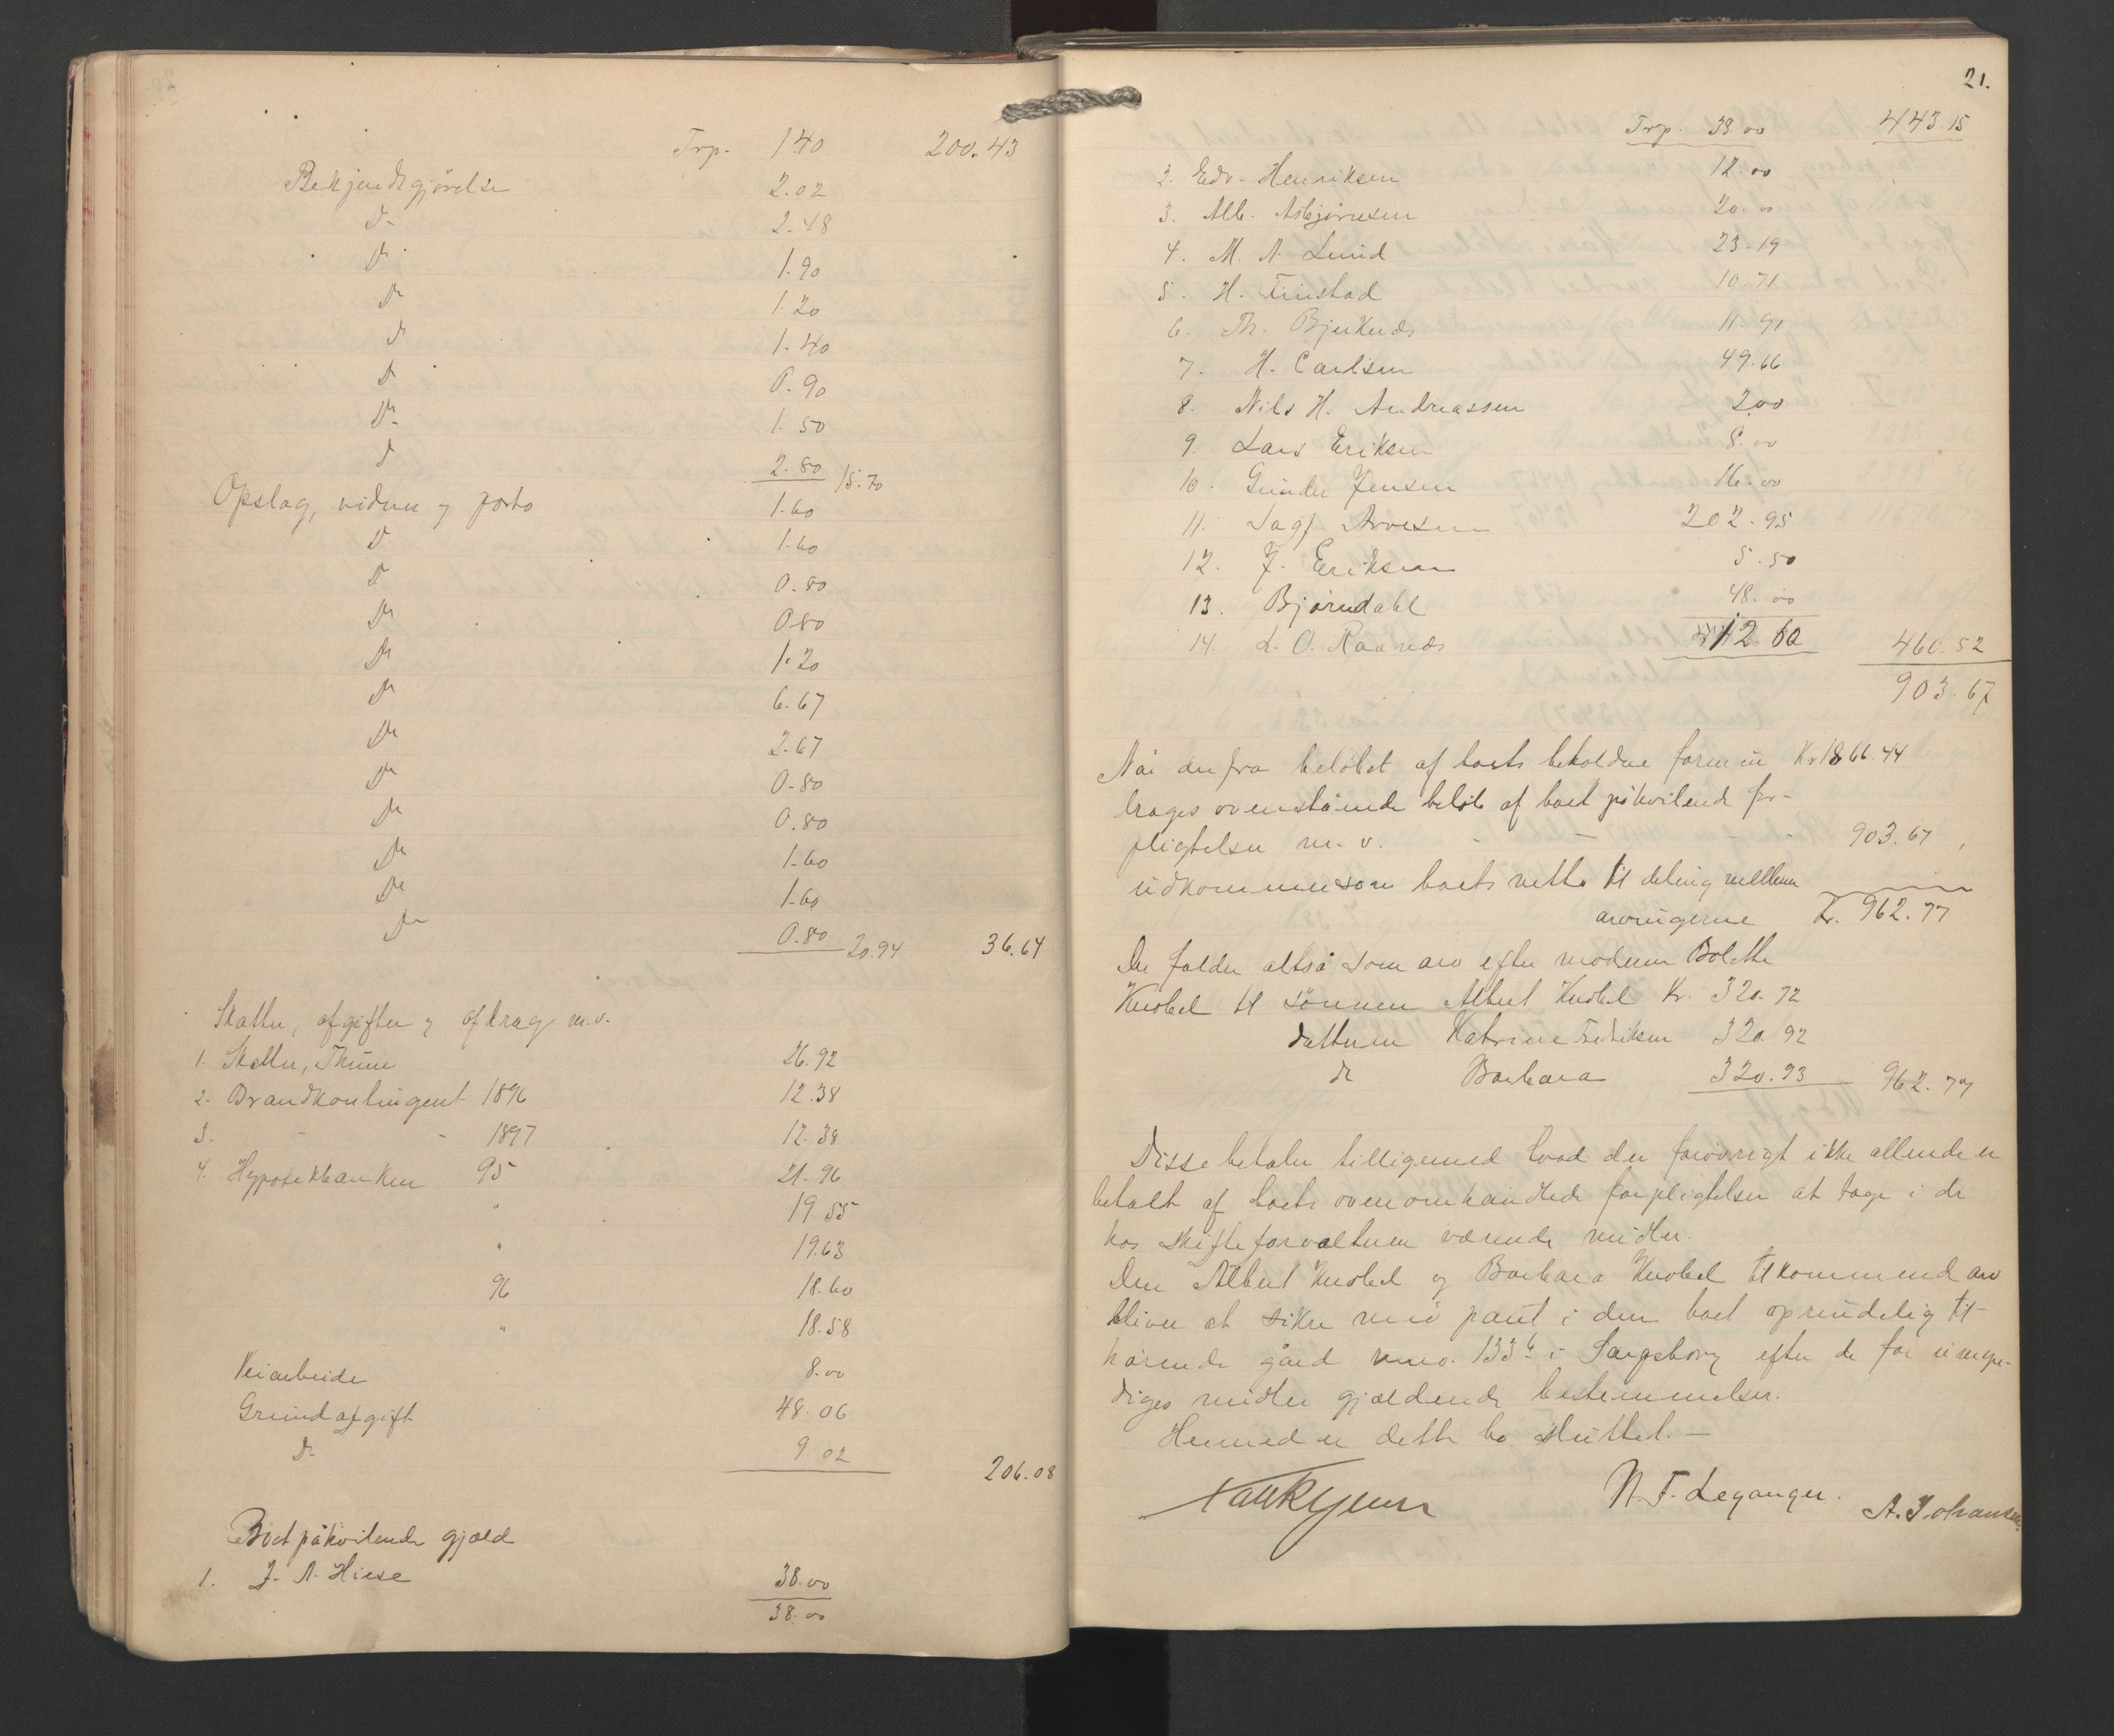 Trp. 1.40 200.43
Bekjendtgjörelse 2.02
Do 2.48
Do 1.90
Do 1.20
Do 1.40
Do 0.90
Do 1.50
Do 2.80 15.70
Opslag, vidner og porto 1.60
Do 1.60
Do 0.80
Do 0.80
Do 1.20
Do 6.67
Do 2.67
Do 0.80
Do 0.80
Do 1.60
Do 1.60
Do 0.80 20.94 36.64
Skatter, afgifter og afdrag m.v.
1. Skatter, Thune 26.92
2. Brandkontingent 1896 12.38
3. - - 1897 12.38
4. Hypotekbanken 95 21.96
" 19.55
" 19.63
96 18.60
" 18.58
Veiarbeide 8.00
Grundafgift 48.06
Do 9.02
206.08
Boet påhvilende gjæld
1. J. A. Hiese 38.00
38.00
21.
Trp. 38.00 443.15
2. Edv. Henriksen 12.00
3. Alb. Asbjørnesen 20.00
4. M. A. Lund 23.19
5. H. Finstad 10.71
6. Th. Bjerknds 11.91
7. H. Carlsen 49.66
8. Nils H. Andreassen 2.00
9. Lars Eriksen 8.00
10. Gunder Jensen 16.00
11. Sagf. Arvesen 202.95
12. J. Eriksen 5.50
13. Bjørndahl 48.00
14. L. O. Raanæs 12.60 460.52
903.67
Når derfra beløbet af boets beholdne formue Kr 1866.44
drages ovenstående beløb af boet påhvilende for-
pligtelser m. v. - - - 903.67,
udkommer som boets netto til deling mellem
arvingerne Kr. 962.77
Der falder altså som arv efter moderen Bolette
Knobel til sønnen Albert Knobel Kr. 320.92
datteren Katrine Fredriksen 320.92
do Barbara 320.93 962.77
Disse beløber tilligemed hvad der forøvrigt ikke allerede er
betalt af boets ovenomhandlede forpligtelser at tage i de
hos skifteforvalteren værende midler.
Den Albert Knobel og Barbara Knobel tilkommende arv
bliver at sikre med pant i den boet oprindelig til-
hørende gård mno. 133b i Sarpsborg efter de for umyn-
diges midler gjældende bestemmelser.
Hermed er dette bo sluttet. —
N. F. Leganger. A. Johansen.